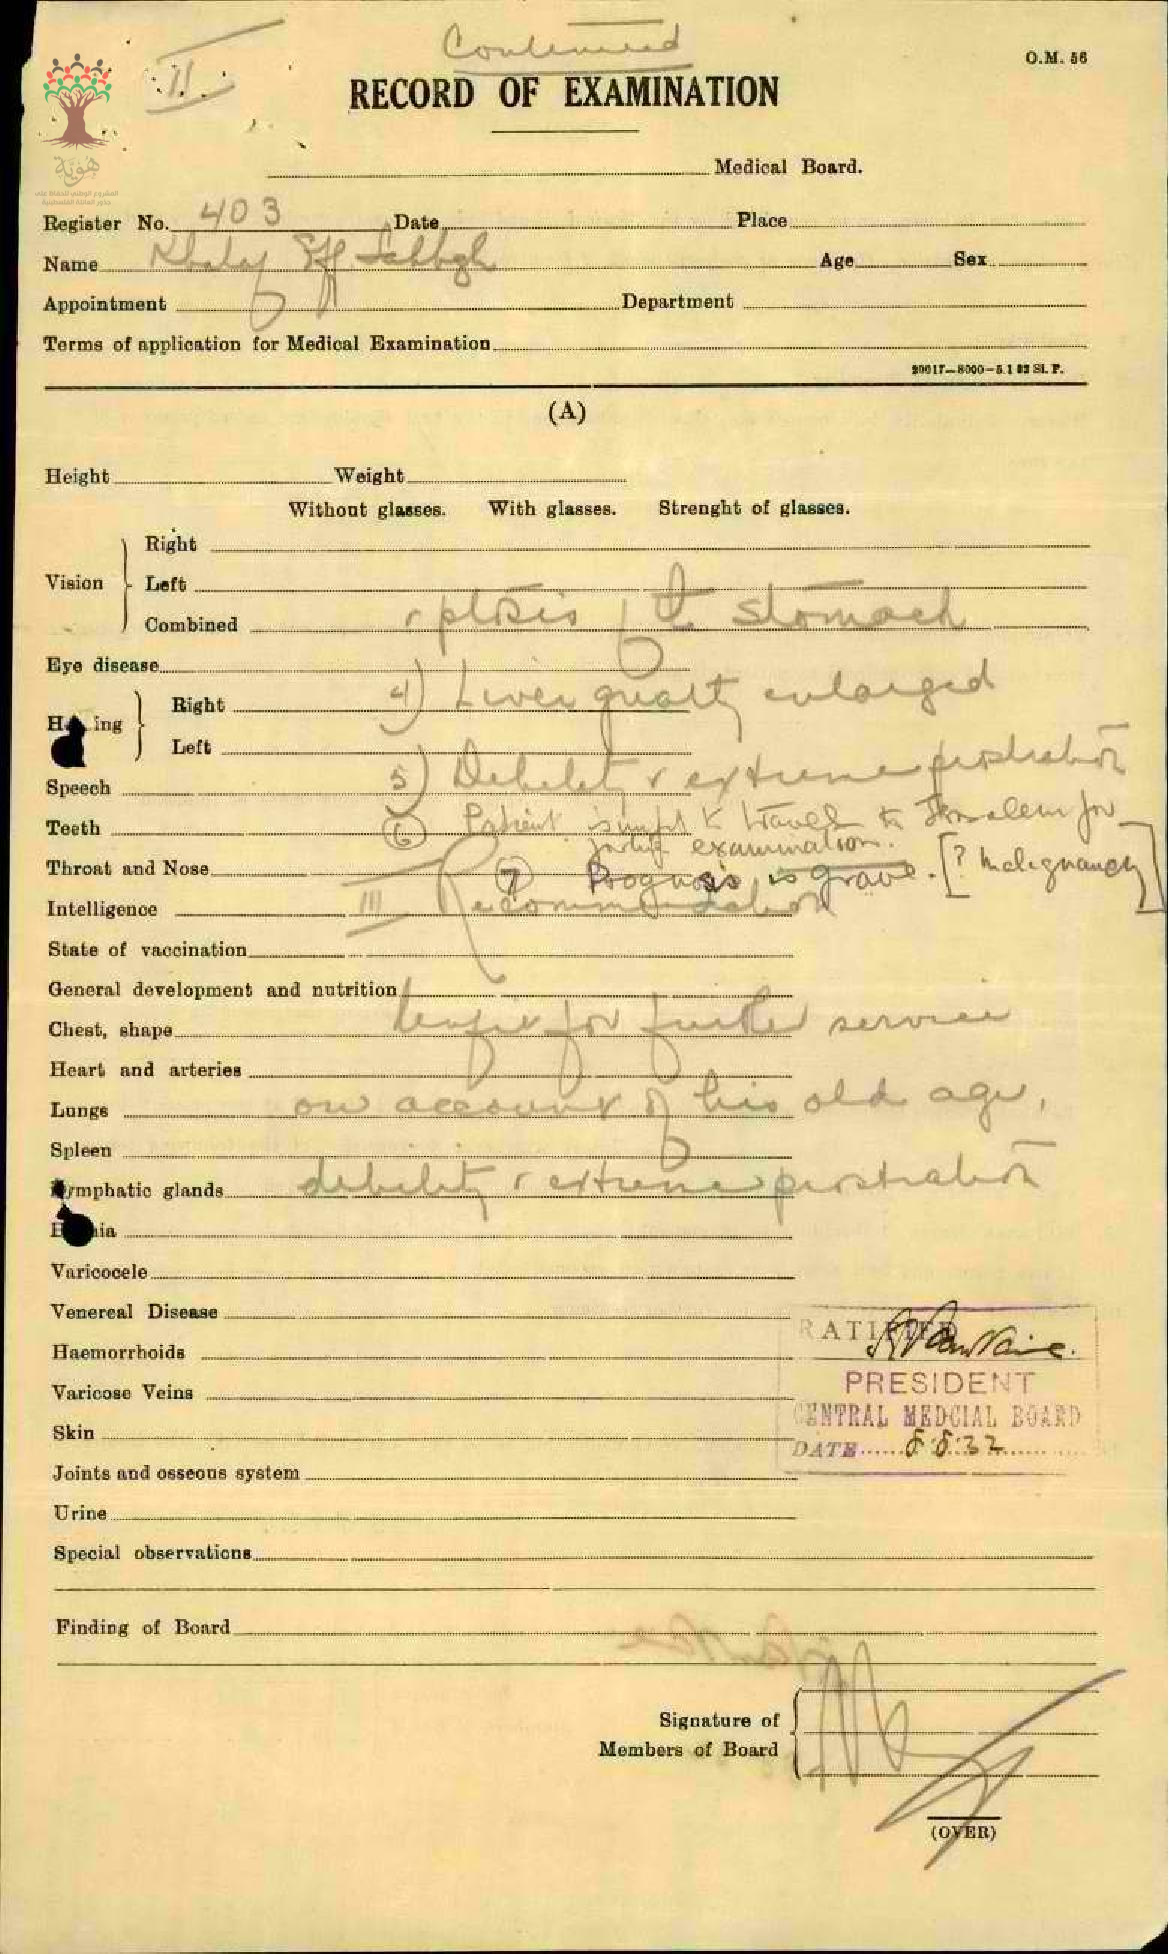 Continued
O.M. 56
II
RECORD OF EXAMINATION
هوية
Medical Board.
Register No. 403 Date Place
Name Eff. Age Sex
Appointment Department
Terms of application for Medical Examination
(A)
Height Weight
Without glasses. With glasses. Strenght of glasses.
Vision
Right
Left
Combined
ptosis of the stomach
Eye disease
4) Liver greatly enlarged
H ing
Right
Left
5) Debility & extreme prostration
Speech
6 Patient is unfit to travel to Jerusalem for
Teeth
examination.
Throat and Nose
7 Prognosis is grave. [? Malignancy]
Intelligence
III Recommendation
State of vaccination
General development and nutrition
Unfit for further service
Chest, shape
Heart and arteries
on account of his old age,
Lungs
Spleen
debility & extreme prostration
ymphatic glands
H nia
Varicocele
Venereal Disease
RATIFIED
Haemorrhoids
PRESIDENT
Varicose Veins
CENTRAL MEDCIAL BOARD
Skin
DATE 5.5.32
Joints and osseous system
Urine
Special observations
Finding of Board
Signature of
Members of Board
(OVER)